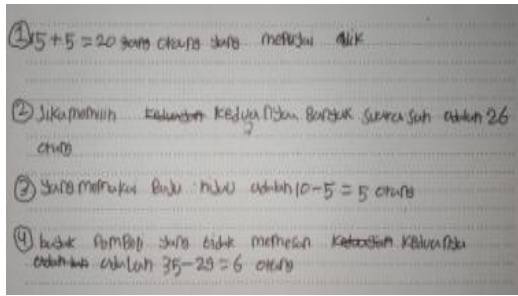 ① 15+5=20 yang orang yang menyukai adik
② Jika memilih keduanya banyak suara sah adalah 26
orang
③ yang memakai baju hijau adalah 10-5=5 orang
④ yang tidak memesan keduanya
adalah 35-29=6 orang